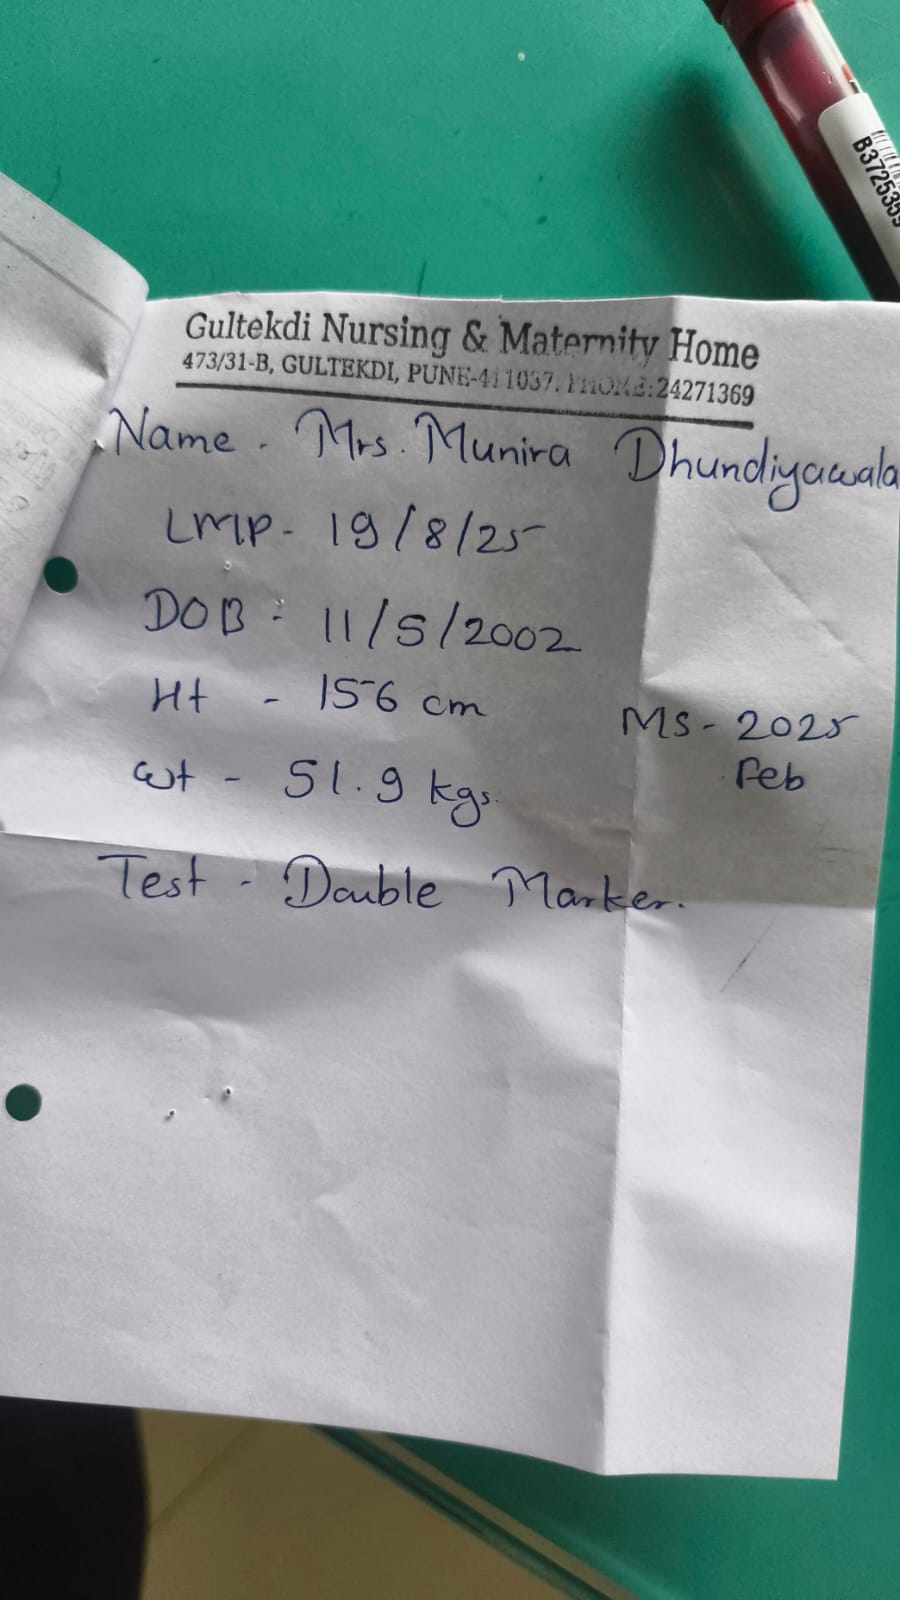 Gultekdi Nursing & Maternity Home
473/31-B, GULTEKDI, PUNE-411037. PHONE:24271369
Name - Mrs. Munira Dhundiyawala
LMP - 19/8/25
DOB : 11/5/2002
Ht - 156 cm
MS - 2025
Feb
wt - 51.9 kgs.
Test - Double Marker.